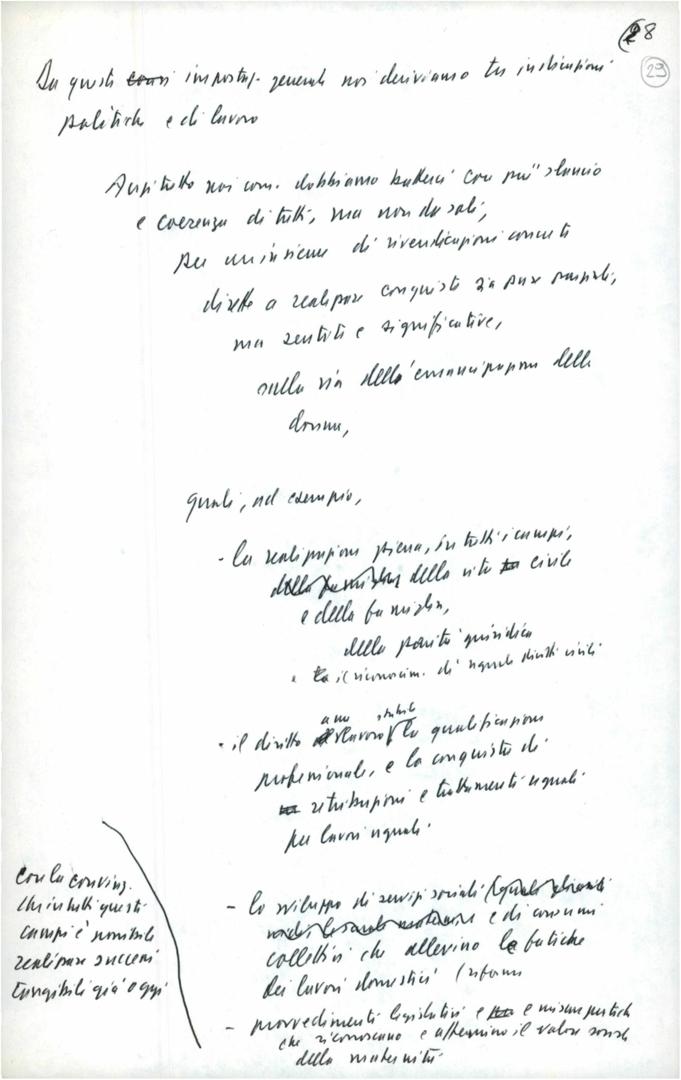 28
29
Da questa impostaz. generale noi deriviamo tre indicazioni
politiche e di lavoro
Anzitutto noi com. dobbiamo batterci con più slancio
e coerenza di tutti, ma non da soli,
per un insieme di rivendicazioni concrete
dirette a realizzare conquiste sia pure parziali,
ma sentite e significative,
sulla via dell'emancipazione della
donna,
quali, ad esempio,
- la realizzazione piena, in tutti i campi,
della famiglia della vita civile
e della famiglia,
della parità giuridica
e il riconoscim. di uguali diritti civili
- il diritto a un lavoro stabile la qualificazione
professionale, e la conquista di
retribuzioni e trattamenti uguali
per lavori uguali
- lo sviluppo di servizi sociali (quali
e di consumi
collettivi che allevino le fatiche
dei lavori domestici (riforme
- provvedimenti legislativi e misure pratiche
che riconoscano e affermino il valore sociale
della maternità
con la convinz.
che in tutti questi
campi è possibile
realizzare successi
tangibili già oggi